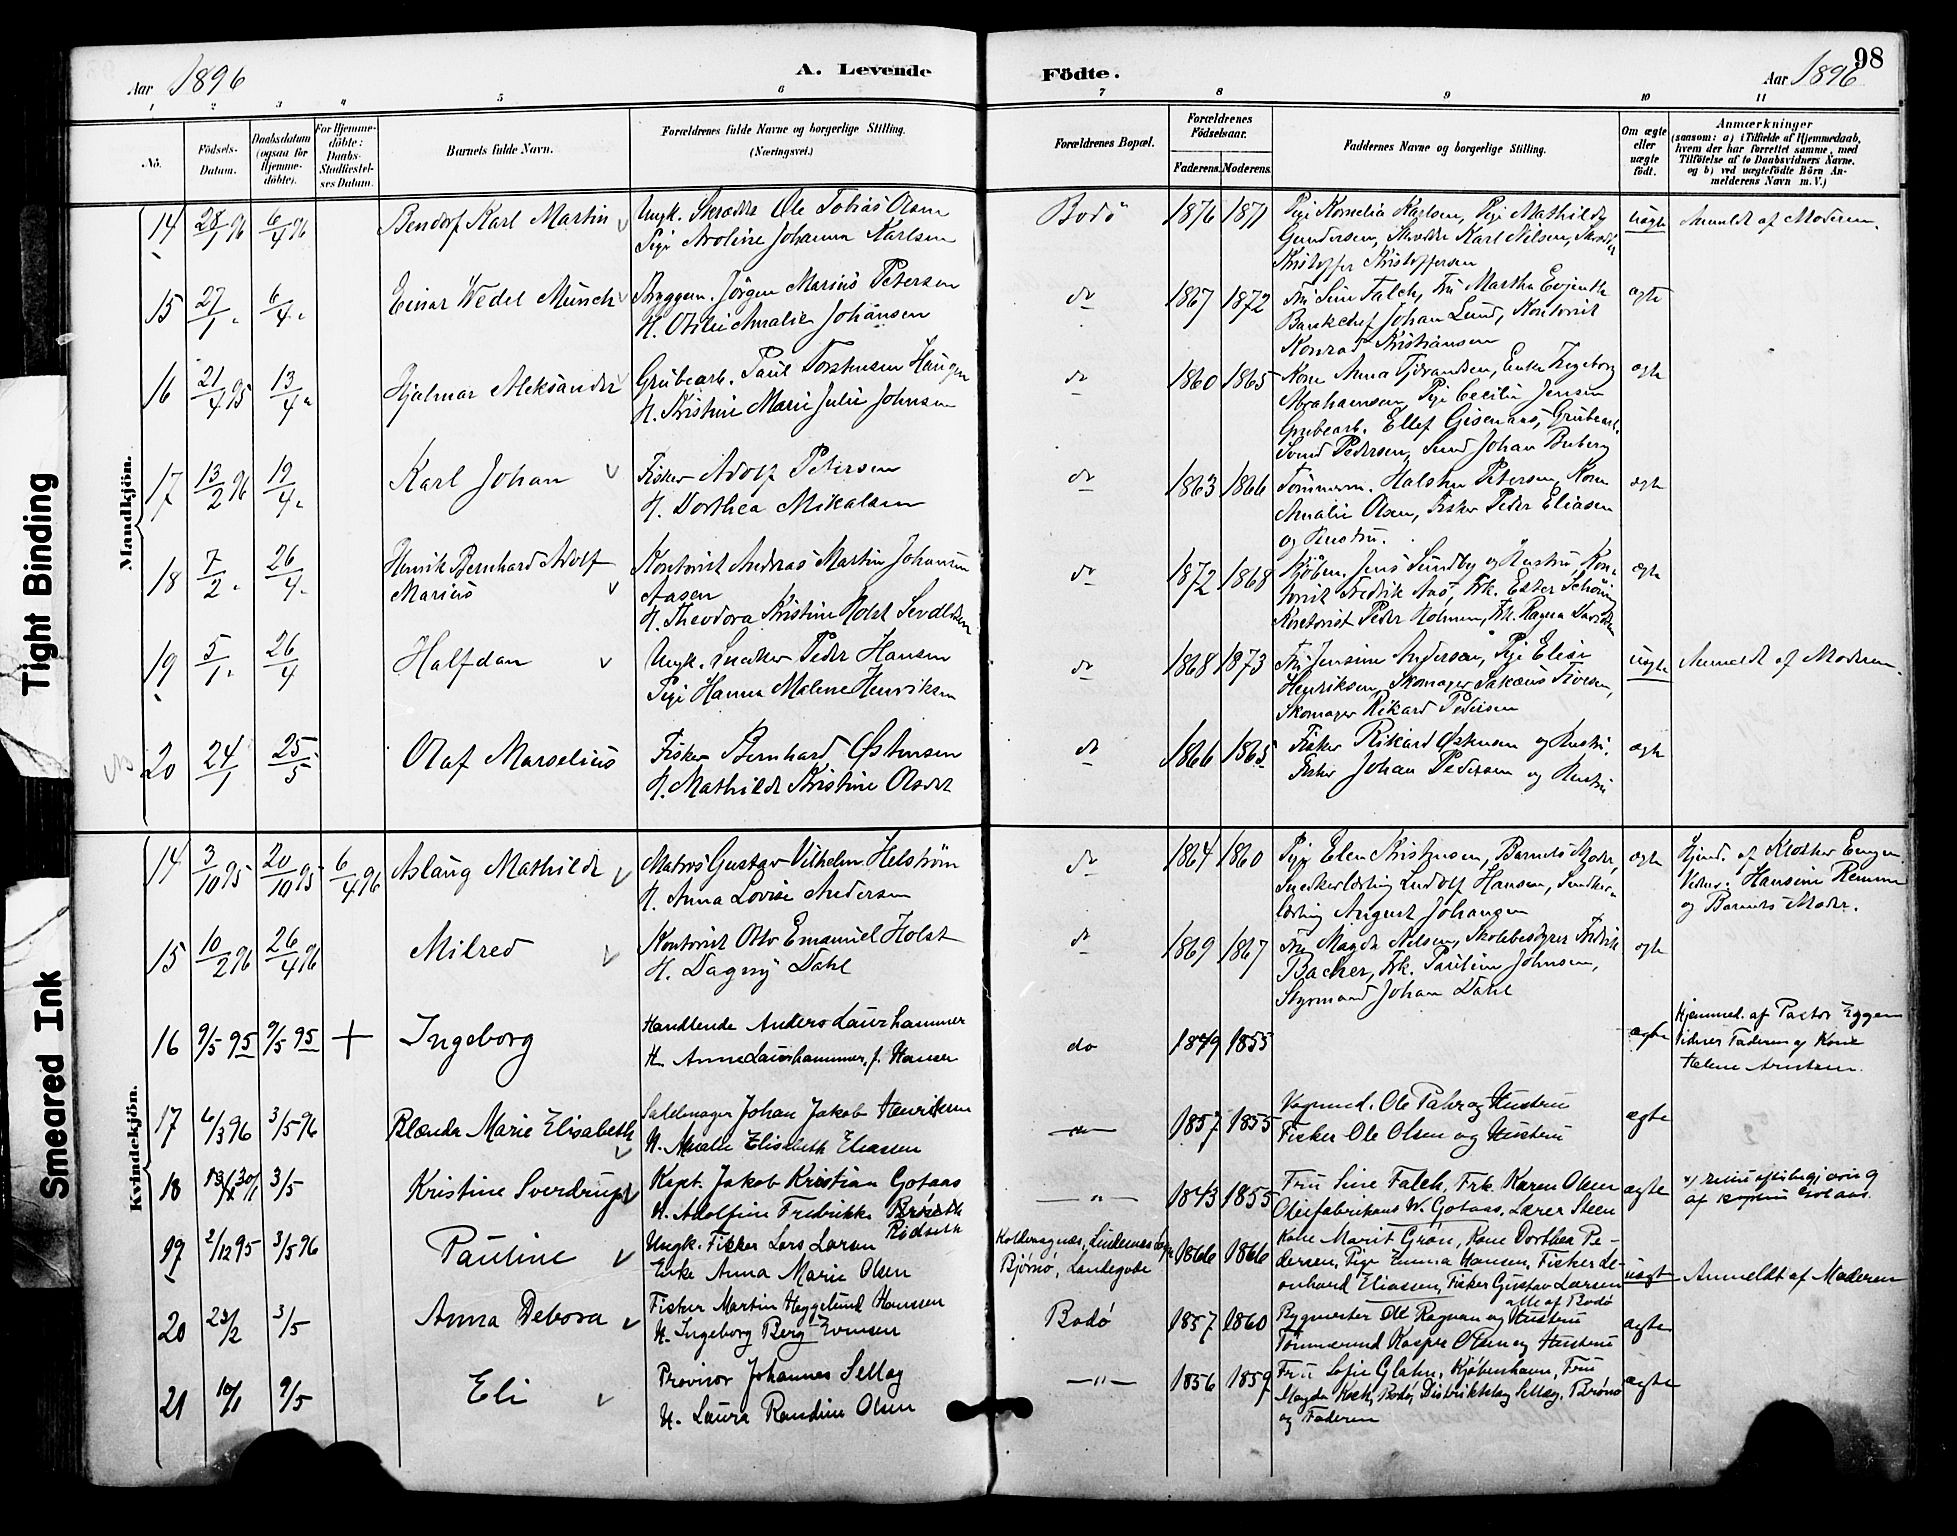 Aar 1896
A. Levende
Födte.
Aar 1896
98
1 2 3 4 5 6 7 8 9 10 11
Nö.
Födsels-Datum.
Daabsdatum (ogsaa for Hjemme-döbte).
For Hjemme-döbte: Daabs-Stadfæstel-ses Datum.
Barnets fulde Navn.
Forældrenes fulde Navne og borgerlige Stilling.
(Næringsvei.)
Forældrenes Bopæl.
Forældrenes Födselsaar.
Faderens. Moderens.
Faddernes Navne og borgerlige Stilling.
Om ægte eller uægte födt.
Anmærkninger
(saasom: a) i Tilfælde af Hjemmedaab, hvem der har forrettet samme, med Tilföielse af to Daabsvidners Navne, og b) ved uægtefödte Börn Anmelderens Navn m. V.)
Mandkjön.
14 28/1 96 6/4 96 Bendorf Karl Martin
Ungk. Skrædder Ole Tobias Olsen
Pige Aroline Johanna Karlsen
Bodö 1876 1871
Pige Kornelia Karlsen, Pige Mathilde
Gundersen, Skrædder Karl Nilsen, Skrædder
Kristoffer Kristoffersen
uægte Anmeldt af Moderen.
15 27/1 " 6/4 " Einar Wedel Münch
Bryggem. Jörgen Marius Petersen
H. Otilie Amalie Johansen
do 1867 1872
Fru Sine Falch, Fru Martha Evjenth
Bankchef Johan Lund, Kontorist
Konrad Kristiansen
ægte
16 21/4 95 13/4 " Hjalmar Aleksander
Grubearb. Paul Torstensen Haugen
H. Kristine Marie Julie Johnsen
do 1860 1865
Kone Anna Tjerandsen, Enke Ingeborg
Abrahamsen, Pige Cecilie Jensen
Grubearb. Ellef Gisenaas, Grubearb.
Svend Pedersen, Johan Buberg
ægte
17 13/2 96 19/4 " Karl Johan
Fisker Adolf Petersen
H. Dorthea Mikalsen
do 1863 1866
Tömmerm. Halsten Petersen, Kone
Amalie Olsen, Fisker Peder Eliasen
og Hustru.
ægte
18 7/2 " 26/4 " Henrik Bernhard Adolf
Marius
Kontorist Andreas Martin Johansen
Aasen
H. Theodora Kristine Holst
do 1872 1868
Kjöbm. Jens Sundby og Hustru, Kon-
torist Fredrik Aas, Frk. Ester Schöning
Kontorist Peder Holmen, Frk. Ragna Davidsen
ægte
19 5/1 " 26/4 Halfdan
Ungk. Snedker Peder Hansen
Pige Hanna Malene Henriksen
do 1868 1873
Fru Jensine Andersen, Pige Elise
Henriksen, Skomager Sakæus Iversen,
Skomager Rikard Pedersen
uægte Anmeldt af Moderen.
20 24/1 25/5 Olaf Marselius
Fisker Bernhard Östensen
H. Mathilde Kristine Olsdt
do 1866 1865
Fisker Rikard Östensen og Hustru.
Fisker Johan Pedersen og Hustru
ægte
Kvindekjön.
14 3/10 95 20/10 95 6/4 96 Aslaug Mathilde
Matros Gustav Vilhelm Helström
H. Anna Lovise Andersen
do 1864 1860
Pige Elen Kristensen, Barnets Moder,
Snedkerlærling Ludolf Hansen, Snedker-
lærling August Johansen
ægte
Hjemd. af Klokker Engen
Vidner: Hansine Remme
og Barnets Moder.
15 10/2 96 26/4 96 Milred
Kontorist Otto Emanuel Holst
H. Dagny Dahl
do 1869 1867
Fru Magda Nilsen, Skolebestyrer Fredrik
Bacher, Frk. Pauline Johnsen,
Styrmand Johan Dahl
ægte
16 9/5 95 9/5 95 + Ingeborg
Handlende Anders Laurhammer
H. Anne Laurhammer, f. Hansen
do 1849 1855
ægte
Hjemmed. af Pastor Eggen
Vidner Faderen og Kone
Helene Arntsen.
17 6/3 96 3/5 96 Blænda Marie Elisabeth
Sadelmager Johan Jakob Henriksen
H. Amalie Elisabeth Eliassen
—"— 1857 1855
Vognmd. Ole Pahr og Hustru
Fisker Ole Olsen og Hustru
ægte
18 3/5 Kristine Sverdrup
Kapt. Jakob Kristian Gotaas
H. Adolfine Fredrikke
Rödseth
—"— 1843 1855
Fru Sine Falch, Frk. Karen Olsen
Oliefabrikant W. Gotaas, Lærer Steen
ægte
19 2/12 95 3/5 96 Pauline
Ungk. Fisker Lars Larsen
Enke Anna Marie Olsen
Bjørnø, Landegode
1866 1866
Kone Marit Grøn, Kone Dorthea Pe-
dersen, Pige Emma Hansen, Fisker Le-
onhard Eliassen, Fisker Gustav Larsen
alle af Bodø
uægte Anmeldt af Moderen
20 23/2 3/5 Anna Debora
Fisker Martin Heggelund Hanssen
H. Ingeborg Berg Evensen
Bodø 1857 1860
Bygmester Ole Rognan og Hustru
Tømmermd Kasper Olsen og Hustru
ægte
21 10/1 9/5 Eli
Provisor Johannes Selläg
H. Laura Randine Olsen
—"— 1856 1859
Fru Sofie Glahn, Kjøbenhavn, Fru
Magda Koch, Bodø, Distriktslæg Selläg, Brønø
og Faderen
ægte
Tight Binding
Smeared Ink